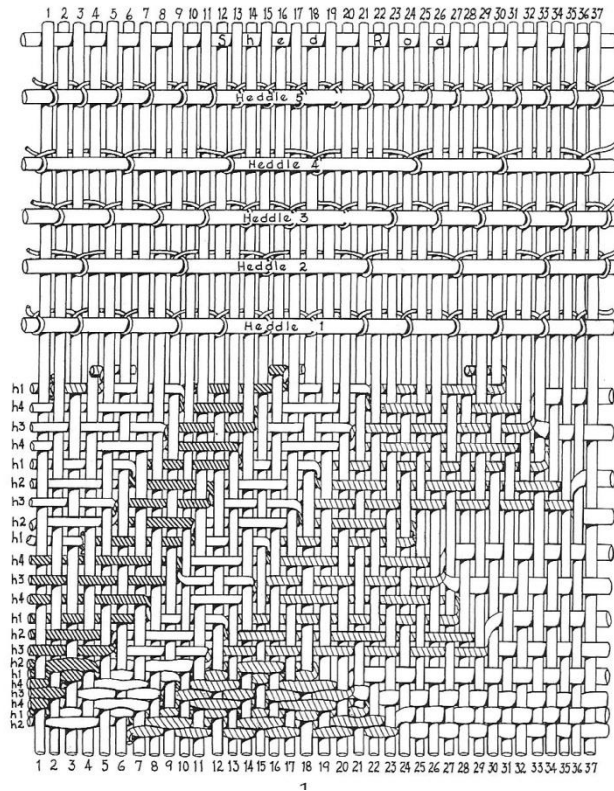 1 2 3 4 5 6 7 8 9 10 11 12 13 14 15 16 17 18 19 20 21 22 23 24 25 26 27 28 29 30 31 32 33 34 35 36 37
Shed Rod
Heddle 5
Heddle 4
Heddle 3
Heddle 2
Heddle 1
h1
h4
h3
h4
h1
h2
h3
h2
h1
h4
h3
h4
h1
h2
h3
h2
h1
h4
h3
h4
h1
h2
1 2 3 4 5 6 7 8 9 10 11 12 13 14 15 16 17 18 19 20 21 22 23 24 25 26 27 28 29 30 31 32 33 34 35 36 37
1